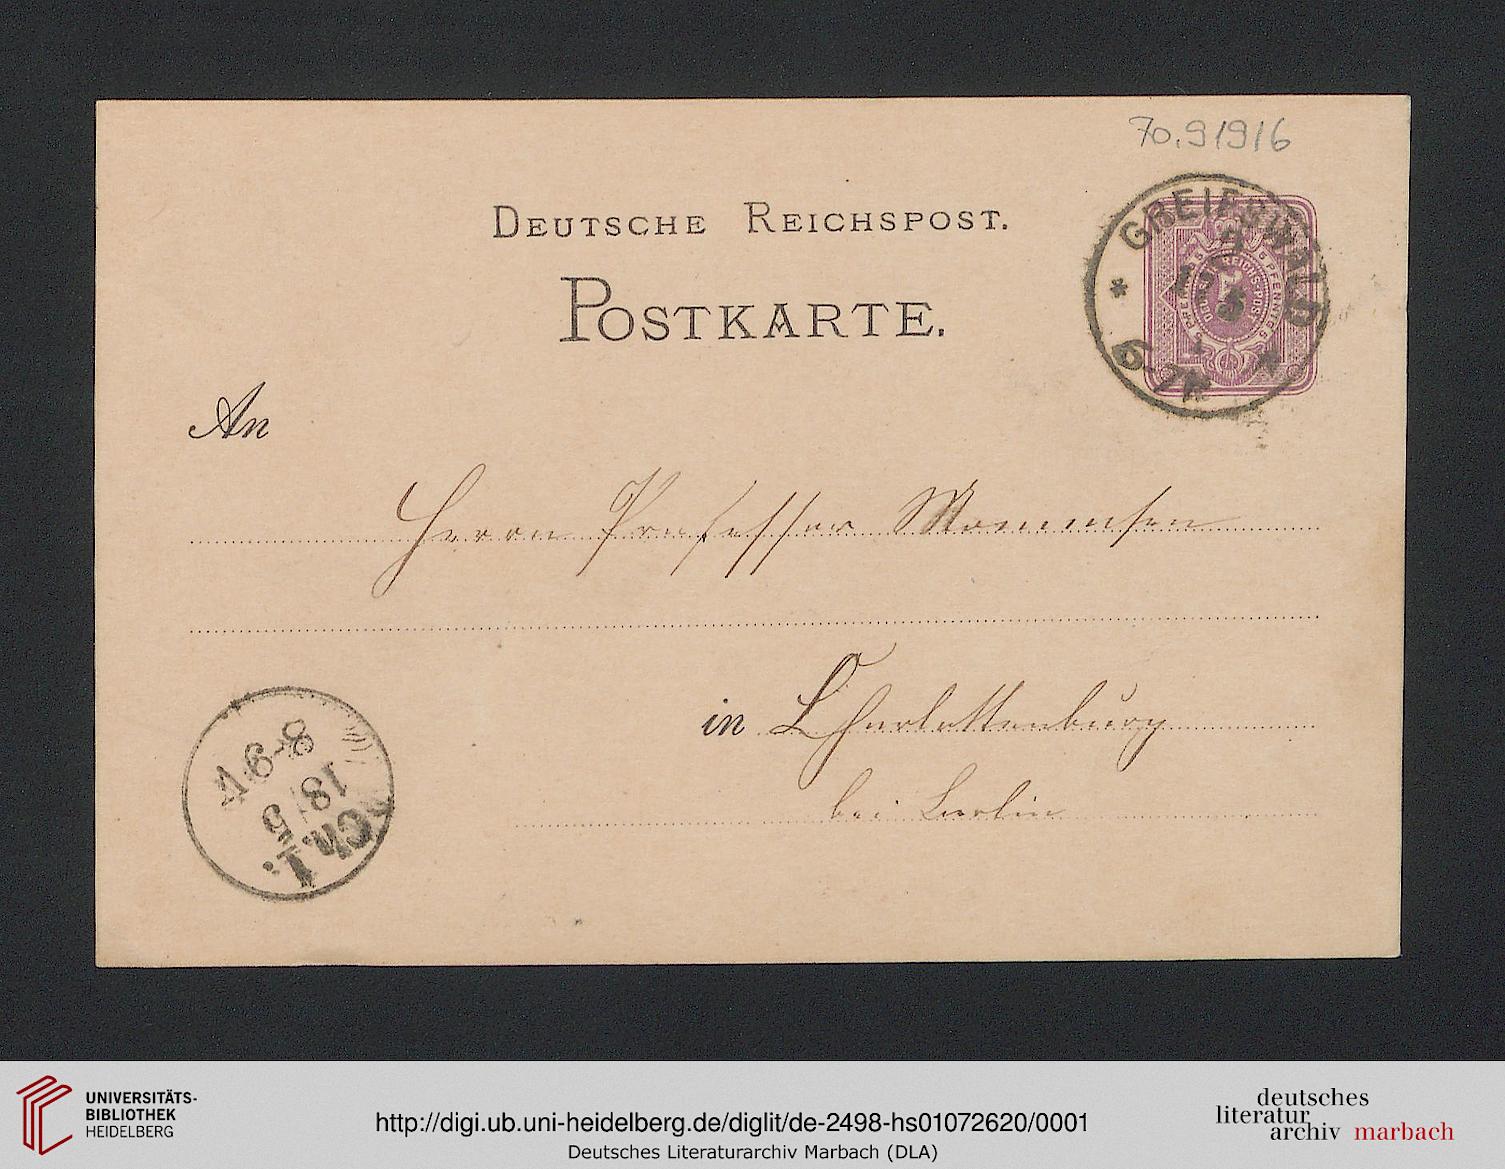 70.91916
DEUTSCHE REICHSPOST.
POSTKARTE.
GREIFSWALD
17 5
6-7N
5 PFENNIG 5
An
Herrn Professor Mommsen
in Charlottenburg
bei Berlin
8-9V
18/5
Ch.1.
UNIVERSITÄTS-
BIBLIOTHEK
HEIDELBERG
http://digi.ub.uni-heidelberg.de/diglit/de-2498-hs01072620/0001
Deutsches Literaturarchiv Marbach (DLA)
deutsches
literatur
archiv marbach